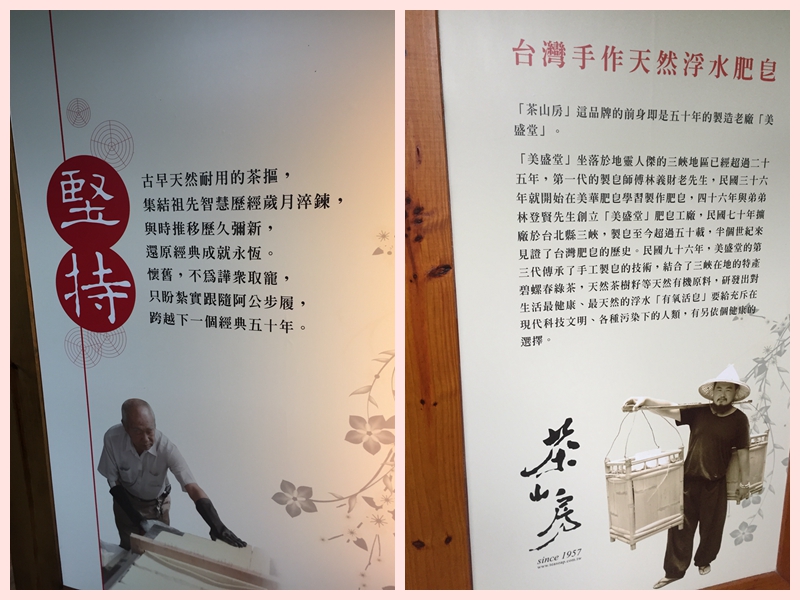 堅持
古早天然耐用的茶摳，
集結祖先智慧歷經歲月淬鍊，
與時推移歷久彌新，
還原經典成就永恆。
懷舊，不為譁衆取寵，
只盼紮實跟隨阿公步履，
跨越下一個經典五十年。
台灣手作天然浮水肥皂
「茶山房」這品牌的前身即是五十年的製造老廠「美
盛堂」。
「美盛堂」坐落於地靈人傑的三峽地區已經超過二十
五年，第一代的製皂師傅林義財老先生，民國三十六
年就開始在美華肥皂學習製作肥皂，四十六年與弟弟
林登賢先生創立「美盛堂」肥皂工廠，民國七十年擴
廠於台北縣三峽，製皂至今超過五十載，半個世紀來
見證了台灣肥皂的歷史。民國九十六年，美盛堂的第
三代傳承了手工製皂的技術，結合了三峽在地的特產
碧螺春綠茶，天然茶樹籽等天然有機原料，研發出對
生活最健康、最天然的浮水「有氧活皂」要給充斥在
現代科技文明、各種污染下的人類，有另依個健康的
選擇。
茶山房
since 1957